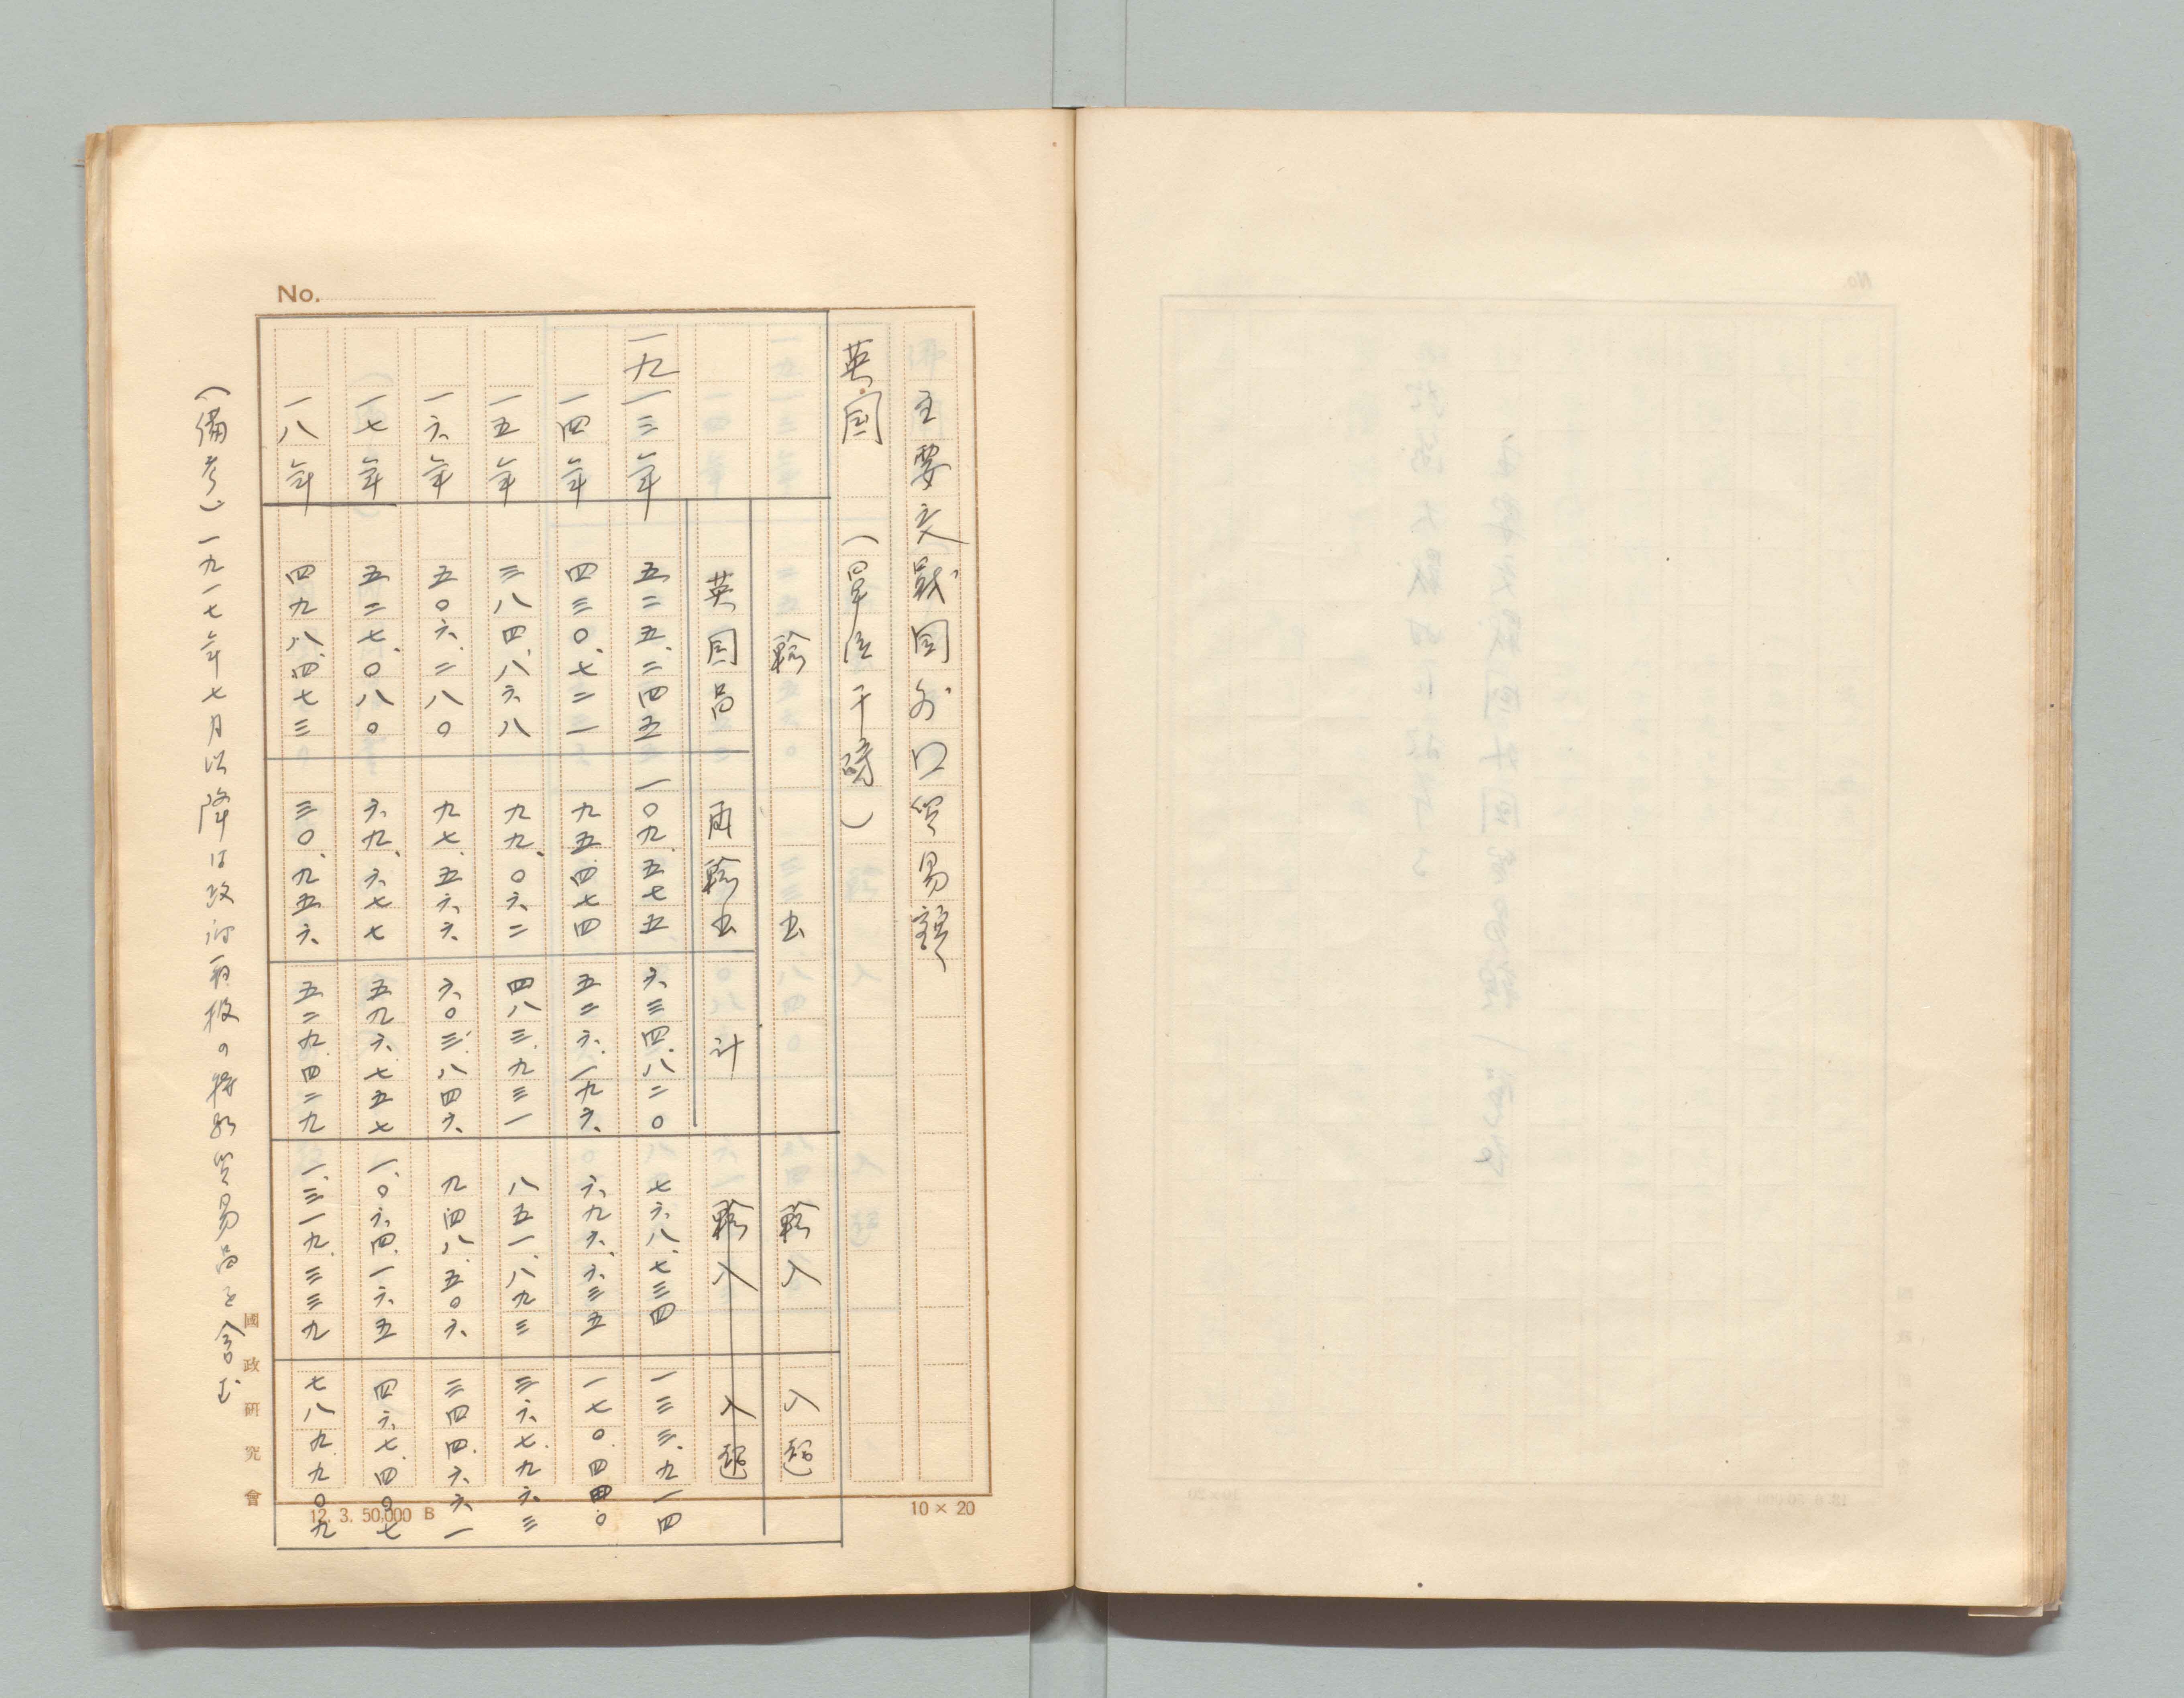 主要交戰国外口貿易額
英国　（單位千磅）
輸出　輸入　入超
英国品　再輸出　計　輸入　入超
一九一三年　五二五、二四五　一〇九、五七五　六三四、八二〇　七六八、七三四　一三三、九一四
一四年　四三〇、七二一　九五、四七四　五二六、一九六　六九六、六三五　一七〇、四四〇
一五年　三八四、八六八　九九、〇六二　四八三、九三一　八五一、八九三　三六七、九六三
一六年　五〇六、二八〇　九七、五六六　六〇三、八四六　九四八、五〇六　三四四、六六一
一七年　五二七、〇八〇　六九、六七七　五九六、七五七　一、〇六四、一六五　四六七、四〇七
一八年　四九八、四七三　三〇、九五六　五二九、四二九　一、三一九、三三九　七八九、九〇九
（備考）一九一七年七月以降は政府取扱の特殊貿易品を含む
No.
國政研究會
12. 3. 50,000 B
10 × 20